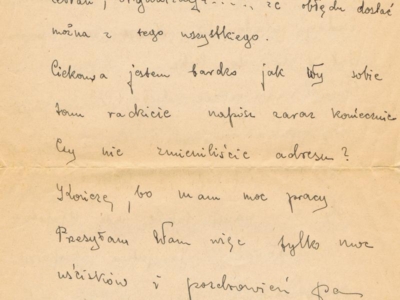 że obłędu dostać
można z tego wszystkiego.
Ciekawa jestem bardzo jak Wy sobie
tam radzicie napisz zaraz koniecznie
Czy nie zmieniliście adresu?
Kończę, bo mam moc pracy
Przesyłam Wam więc tylko moc
uścisków i pozdrowień